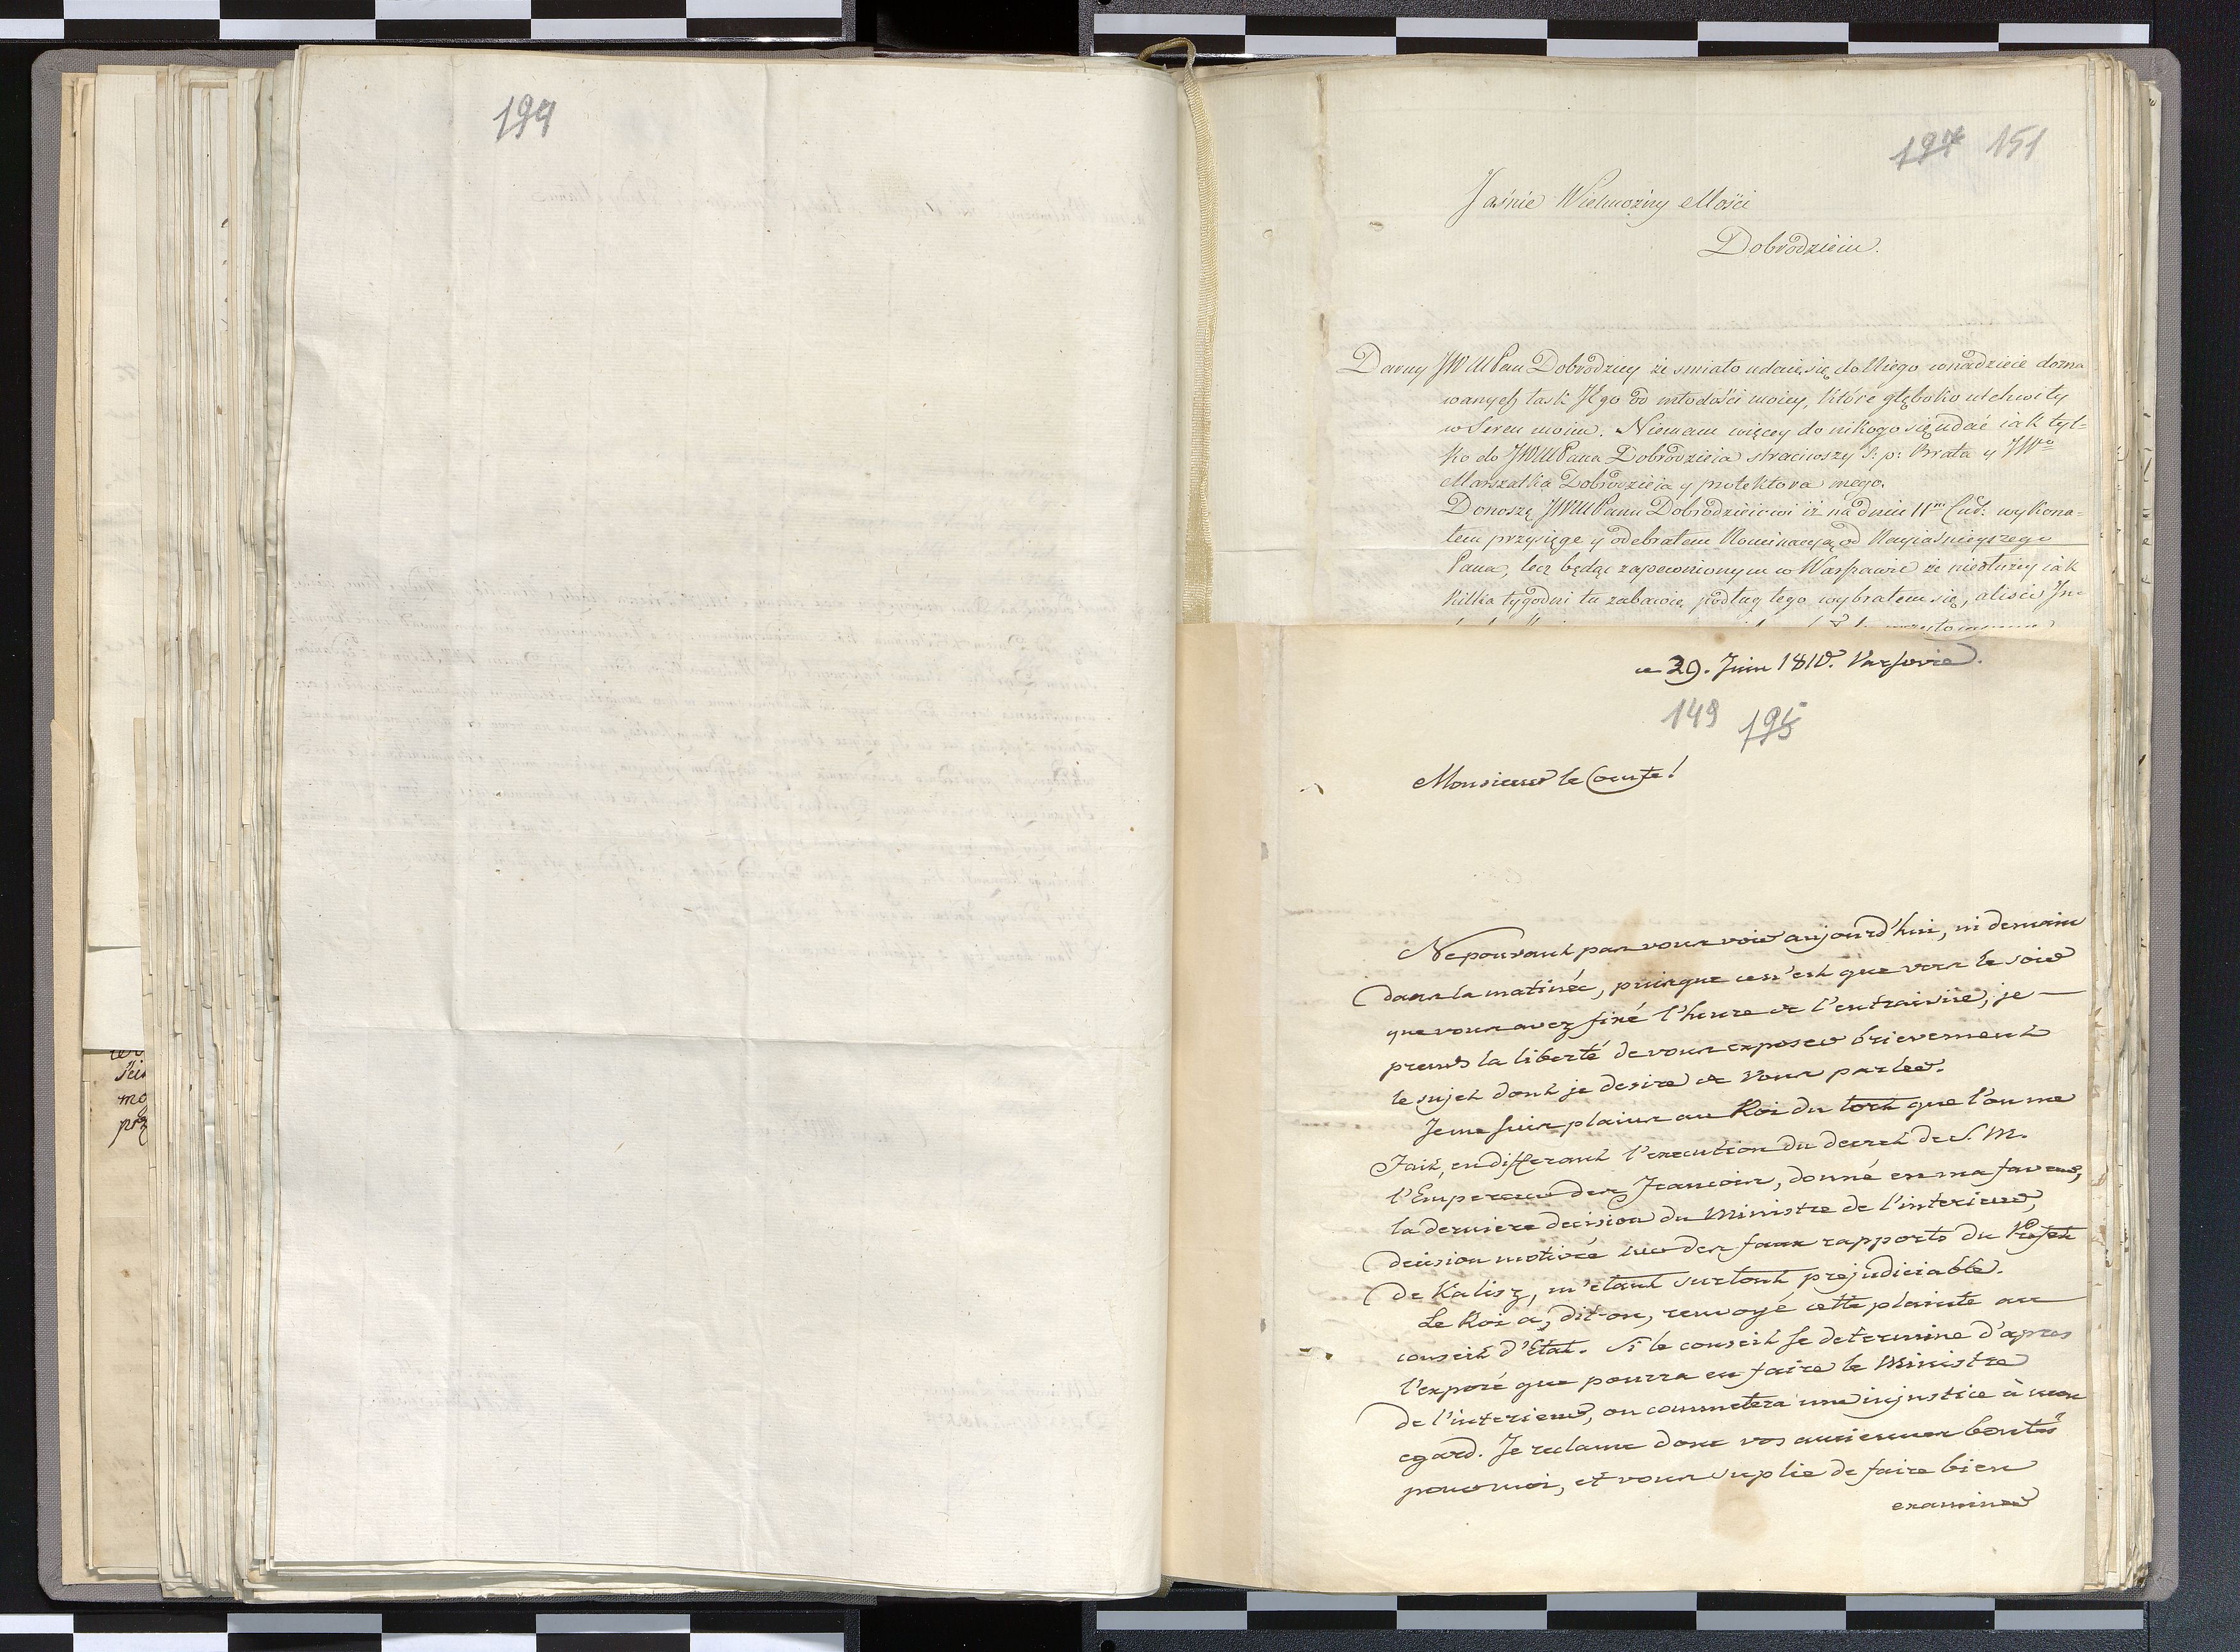 194
197 151
Jaśnie Wielmożny Mości
Dobrodzieiu.
Daruy JWWPan Dobrodziey że smiało udaię się do Niego w nadzieie dozna
wanych łask JEgo od młodości moiey, które głęboko utchwiły
w Sercu moim. Niemam więcey do nikogo się udać iak tyl=
ko do JWWPana Dobrodzieia straciwszy S: p: Brata y JWo
Marszałka Dobrodzieia y protektora mego.
Donoszę JWWPanu Dobrodzieiowi iż na dniu 11m Cud: wykona=
łem przysięgę y odebrałem Nominacyą od Nayiaśnieyszego
Pana, lecz będąc zapewnionym w Warszawie że niedłużey iak
kilka tygodni tu zabawię, podług tego wybrałem się, aliści
ce 29. Juin 1810. Varsovie.
149 195
Monsieur le Comte!
Ne pouvant pas vous voir aujourd'hui, ni demain
dans la matinée, puisque ce n'est que vers le soir
que vous avez fixé l'heure de l'entraivüe, je —
prends la liberté de vous exposer brievement
le sujet dont je desire de vous parler.
Je me suis plains au Roi du tort que l'on me
fait, en differant l'execution du decret de S. M.
l'Empereur des Francois, donné en ma faveur,
la derniere decision du Ministre de l'interieur,
decision motivée sur des faux rapports du Prefet
de Kalisz, m'etant surtout prejudiciable.
Le Roi a, dit-on, renvoyé cette plainte au
conseil d'Etat. Si le conseil se determine d'apres
l'exposé que pourra en faire le Ministre
de l'interieur, on commetera une injustice à mon
egard. Je reclame donc vos anciennes bontés
pour moi, et vous suplie de faire bien
examiner